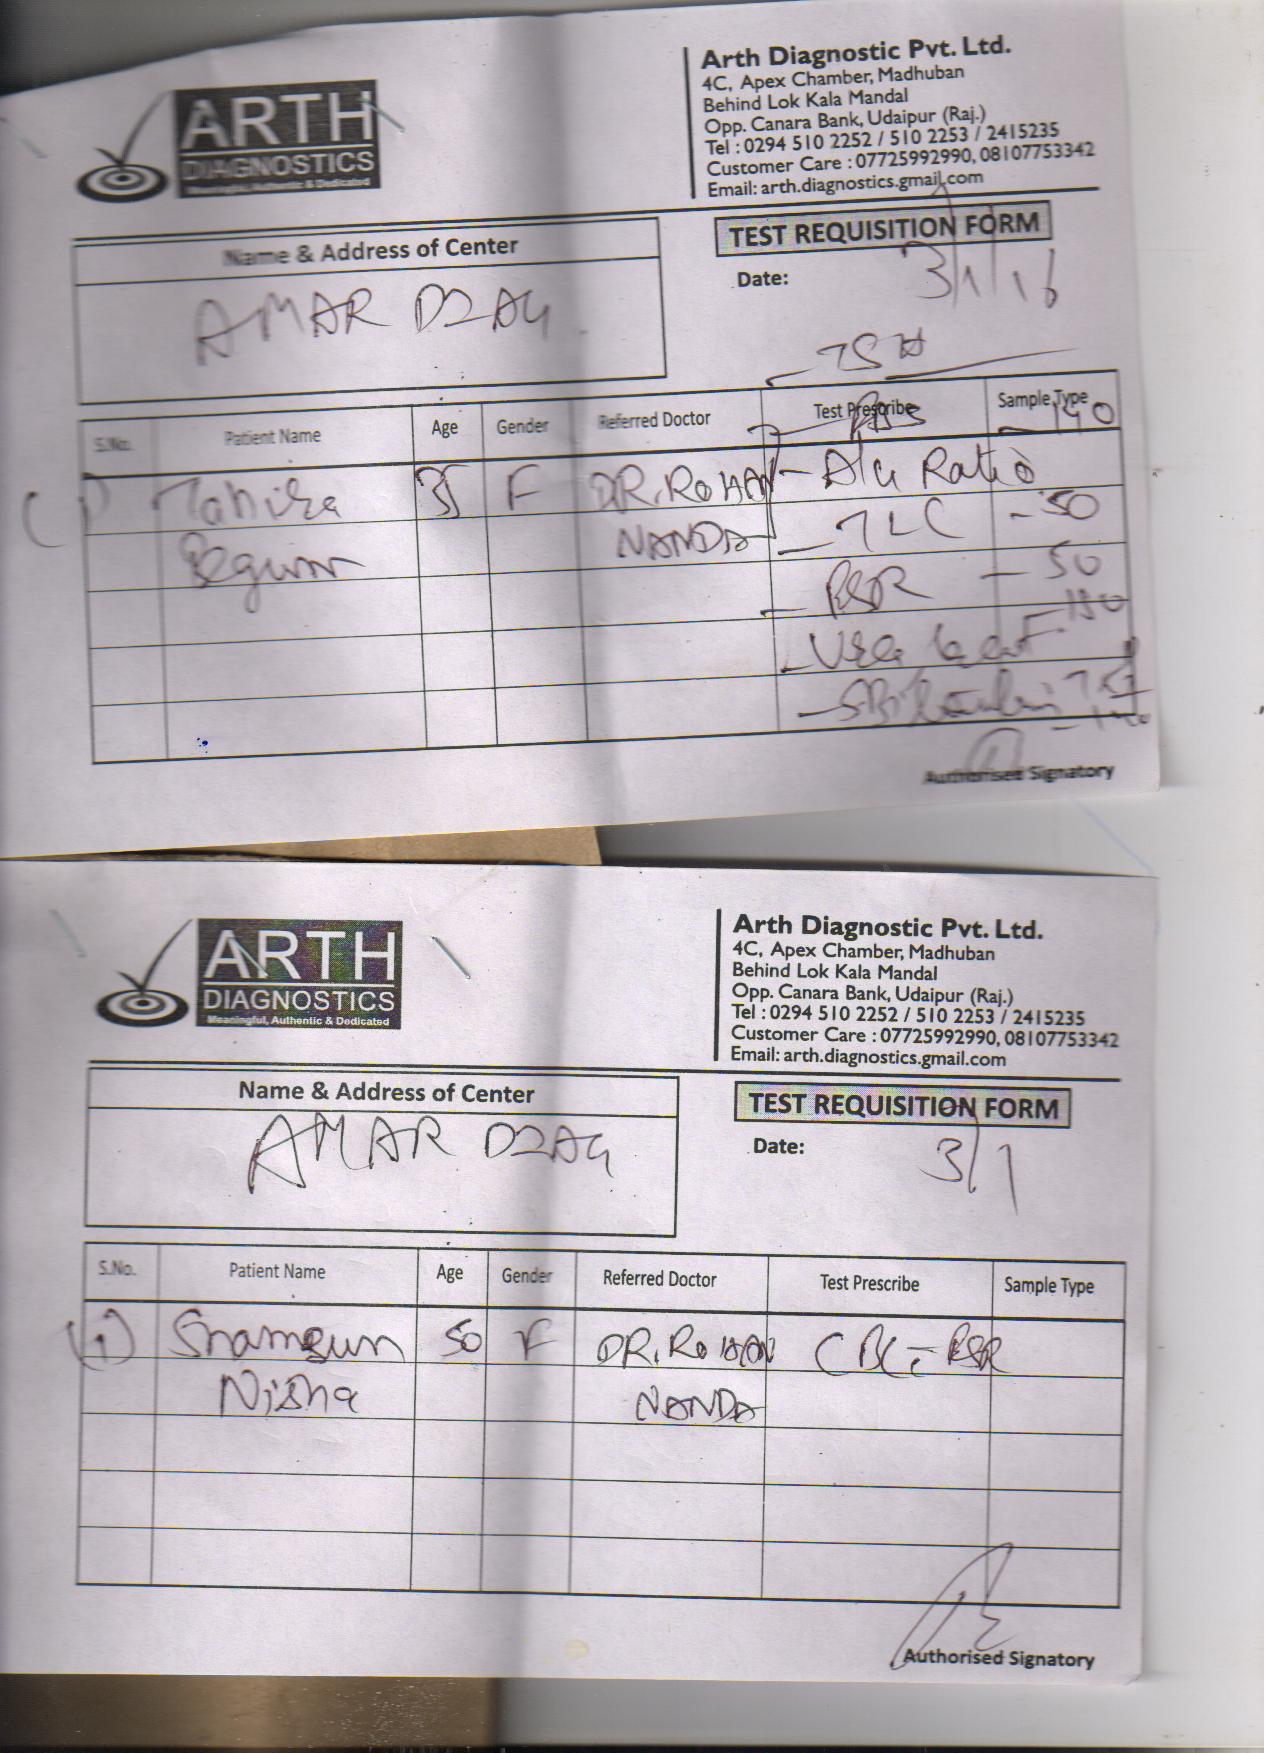 ARTH
DIAGNOSTICS
Meaningful, Authentic & Dedicated
Arth Diagnostic Pvt. Ltd.
4C, Apex Chamber, Madhuban
Behind Lok Kala Mandal
Opp. Canara Bank, Udaipur (Raj.)
Tel : 0294 510 2252 / 510 2253 / 2415235
Customer Care : 07725992990, 08107753342
Email: arth.diagnostics.gmail.com
Name & Address of Center
TEST REQUISITION FORM
AMAR
Date: 3/1/16
TSH
S.No. Patient Name Age Gender Referred Doctor Test Prescribe Sample Type
Tahira 35 F DR. ROHAN - A/G Ratio
Begum NANDA - TLC - 50
- ESR - 50
Authorised Signatory
ARTH
DIAGNOSTICS
Meaningful, Authentic & Dedicated
Arth Diagnostic Pvt. Ltd.
4C, Apex Chamber, Madhuban
Behind Lok Kala Mandal
Opp. Canara Bank, Udaipur (Raj.)
Tel : 0294 510 2252 / 510 2253 / 2415235
Customer Care : 07725992990, 08107753342
Email: arth.diagnostics.gmail.com
Name & Address of Center
TEST REQUISITION FORM
AMAR
Date: 3/1
S.No. Patient Name Age Gender Referred Doctor Test Prescribe Sample Type
(1) 50 F DR. ROHAN CBC - ESR
Nisha NANDA
Authorised Signatory